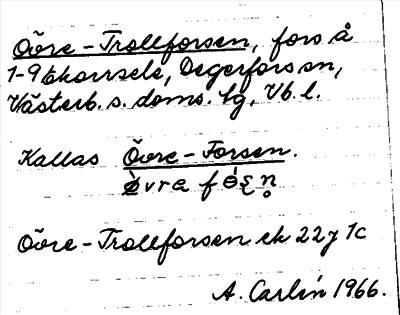 Övre-Trollforsen, fors å
1-9 Ekorrsele, Degerfors sn,
Västerb. s. doms. lg, Vb. l.
Kallas Övre-Forsen.
Övre-Trollforsen ek 22 J 1c
A. Carlin 1966.